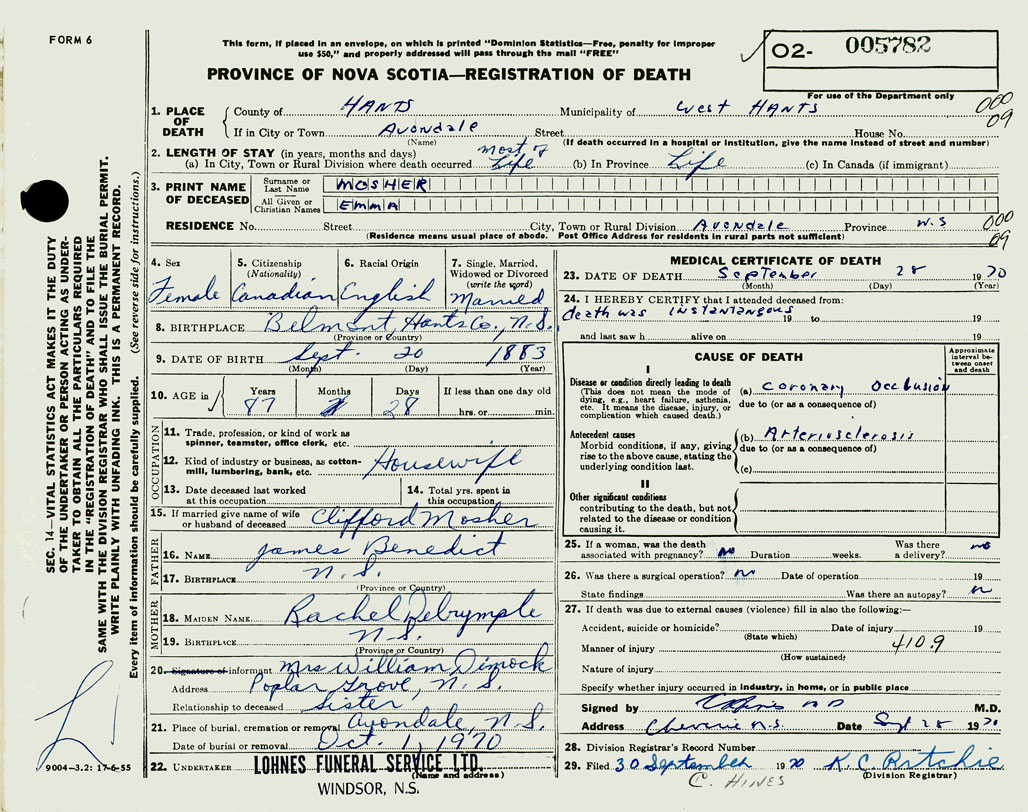 FORM 6
This form, if placed in an envelope, on which is printed "Dominion Statistics—Free, penalty for improper
use $50," and properly addressed will pass through the mail "FREE"
O2- 005782
For use of the Department only
PROVINCE OF NOVA SCOTIA—REGISTRATION OF DEATH
000
09
1. PLACE OF DEATH County of HANTS Municipality of West HANTS
If in City or Town Avondale Street House No.
(Name) (If death occurred in a hospital or institution, give the name instead of street and number)
2. LENGTH OF STAY (in years, months and days) most of
(a) In City, Town or Rural Division where death occurred Life (b) In Province Life (c) In Canada (if immigrant)
3. PRINT NAME OF DECEASED
Surname or Last Name MOSHER
All Given or Christian Names EMMA
RESIDENCE No. Street City, Town or Rural Division Avondale Province N.S
(Residence means usual place of abode. Post Office Address for residents in rural parts not sufficient)
000
09
4. Sex
Female
5. Citizenship
(Nationality)
Canadian
6. Racial Origin
English
7. Single, Married,
Widowed or Divorced
(write the word)
Married
8. BIRTHPLACE Belmont, Hants Co., N.S.
(Province or Country)
9. DATE OF BIRTH Sept. 20 1883
(Month) (Day) (Year)
10. AGE in Years Months Days If less than one day old
87 28 hrs. or min.
OCCUPATION
11. Trade, profession, or kind of work as
spinner, teamster, office clerk, etc.
12. Kind of industry or business, as cotton-
mill, lumbering, bank, etc. Housewife
13. Date deceased last worked
at this occupation
14. Total yrs. spent in
this occupation
15. If married give name of wife
or husband of deceased Clifford Mosher
FATHER
16. NAME James Benedict
17. BIRTHPLACE N.S.
(Province or Country)
MOTHER
18. MAIDEN NAME Rachel Delrymple
19. BIRTHPLACE N.S.
(Province or Country)
20. Signature of informant Mrs William Dimock
Address Poplar Grove, N.S.
Relationship to deceased Sister
21. Place of burial, cremation or removal Avondale, N.S.
Date of burial or removal Oct. 1, 1970
22. UNDERTAKER LOHNES FUNERAL SERVICE LTD.
(Name and address)
WINDSOR, N.S.
MEDICAL CERTIFICATE OF DEATH
23. DATE OF DEATH September 28 1970
(Month) (Day) (Year)
24. I HEREBY CERTIFY that I attended deceased from:
death was instantaneous 19 to 19
and last saw h alive on 19
CAUSE OF DEATH
Approximate interval between onset and death
I
Disease or condition directly leading to death
(This does not mean the mode of
dying, e.g., heart failure, asthenia,
etc. It means the disease, injury, or
complication which caused death.)
(a) Coronary Occlusion
due to (or as a consequence of)
Antecedent causes
Morbid conditions, if any, giving
rise to the above cause, stating the
underlying condition last.
(b) Arteriosclerosis
due to (or as a consequence of)
(c)
II
Other significant conditions
contributing to the death, but not
related to the disease or condition
causing it.
25. If a woman, was the death Was there
associated with pregnancy? No Duration weeks. a delivery? no
26. Was there a surgical operation? no Date of operation 19
State findings Was there an autopsy? n
27. If death was due to external causes (violence) fill in also the following:—
Accident, suicide or homicide? Date of injury 19
(State which)
Manner of injury 410.9
(How sustained)
Nature of injury
Specify whether injury occurred in industry, in home, or in public place
Signed by MD M.D.
Address Cheverie N.S. Date Sept 28 1970
28. Division Registrar's Record Number
29. Filed 30 September 1970 K.C. Ritchie
(Division Registrar)
C. HINES
SEC. 14—VITAL STATISTICS ACT MAKES IT THE DUTY
OF THE UNDERTAKER OR PERSON ACTING AS UNDER-
TAKER TO OBTAIN ALL THE PARTICULARS REQUIRED
IN THE "REGISTRATION OF DEATH" AND TO FILE THE
SAME WITH THE DIVISION REGISTRAR WHO SHALL ISSUE THE BURIAL PERMIT.
WRITE PLAINLY WITH UNFADING INK. THIS IS A PERMANENT RECORD.
Every item of information should be carefully supplied. (See reverse side for instructions.)
9004-3.2: 17-6-55